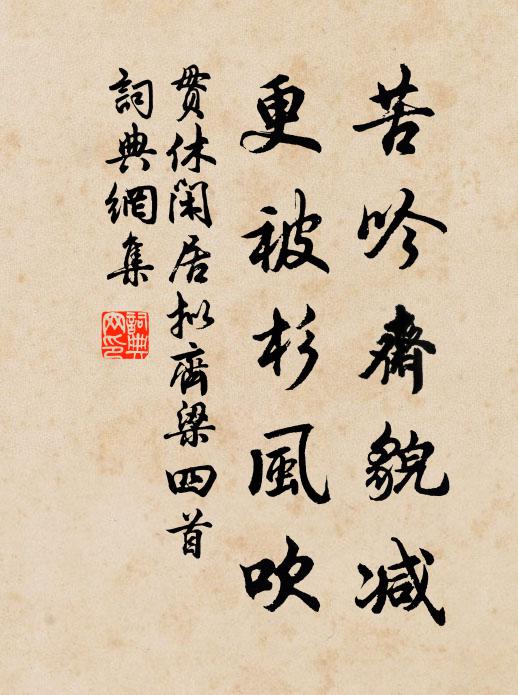 苦吟齋貌减
更被杉風吹
貫休閑居拟齊梁四首
詞典網集
詞典
网印